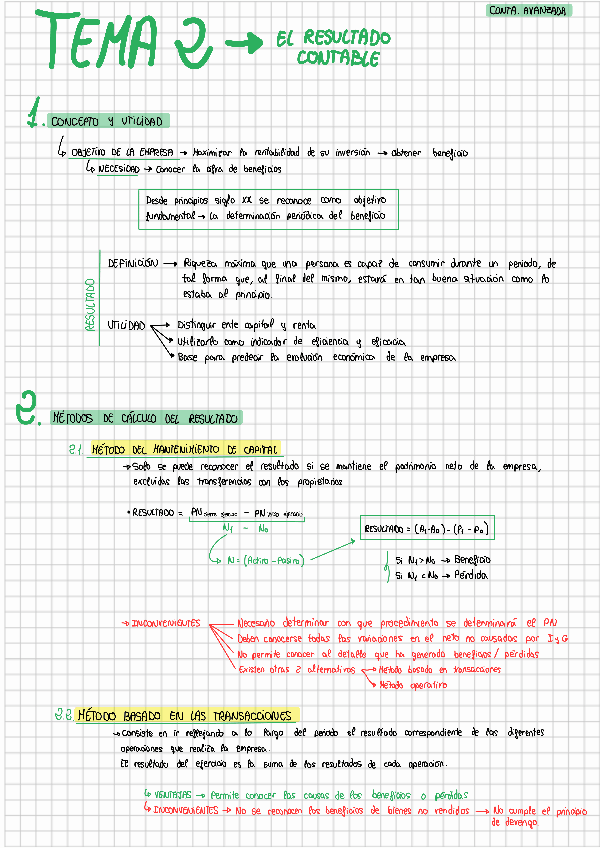 CONTA. AVANZADA
TEMA 2 → EL RESULTADO
CONTABLE
1. CONCEPTO Y UTILIDAD
↳ OBJETIVO DE LA EMPRESA → Maximizar la rentabilidad de su inversión → obtener beneficio
↳ NECESIDAD → Conocer la cifra de beneficios
Desde principios siglo XX se reconoce como objetivo
fundamental → La determinación periódica del beneficio
RESULTADO
DEFINICIÓN → Riqueza máxima que una persona es capaz de consumir durante un periodo, de
tal forma que, al final del mismo, estará en tan buena situación como lo
estaba al principio.
UTILIDAD → Distinguir ente capital y renta
→ Utilizarlo como indicador de eficiencia y eficacia
→ Base para predecir la evolución económica de la empresa
2. MÉTODOS DE CÁLCULO DEL RESULTADO
2.1. MÉTODO DEL MANTENIMIENTO DE CAPITAL
→ Solo se puede reconocer el resultado si se mantiene el patrimonio neto de la empresa,
excluidas las transferencias con los propietarios
• RESULTADO = PN - PN
N₁ - N₀
RESULTADO = (A₁-A₀) - (P₁-P₀)
↳ N = (Activo - Pasivo)
Si N₁ > N₀ → Beneficio
Si N₁ < N₀ → Pérdida
→ INCONVENIENTES
Necesario determinar con que procedimiento se determinará el PN
Deben conocerse todas las variaciones en el neto no causadas por I y G
No permite conocer al detalle que ha generado beneficios / pérdidas
Existen otras 2 alternativas → Método basado en transacciones
→ Método operativo
2.2. MÉTODO BASADO EN LAS TRANSACCIONES
→ Consiste en ir reflejando a lo largo del periodo el resultado correspondiente de las diferentes
operaciones que realiza la empresa.
El resultado del ejercicio es la suma de los resultados de cada operación.
↳ VENTAJAS → Permite conocer las causas de los beneficios o pérdidas
↳ INCONVENIENTES → No se reconocen los beneficios de bienes no vendidos → No cumple el principio
de devengo